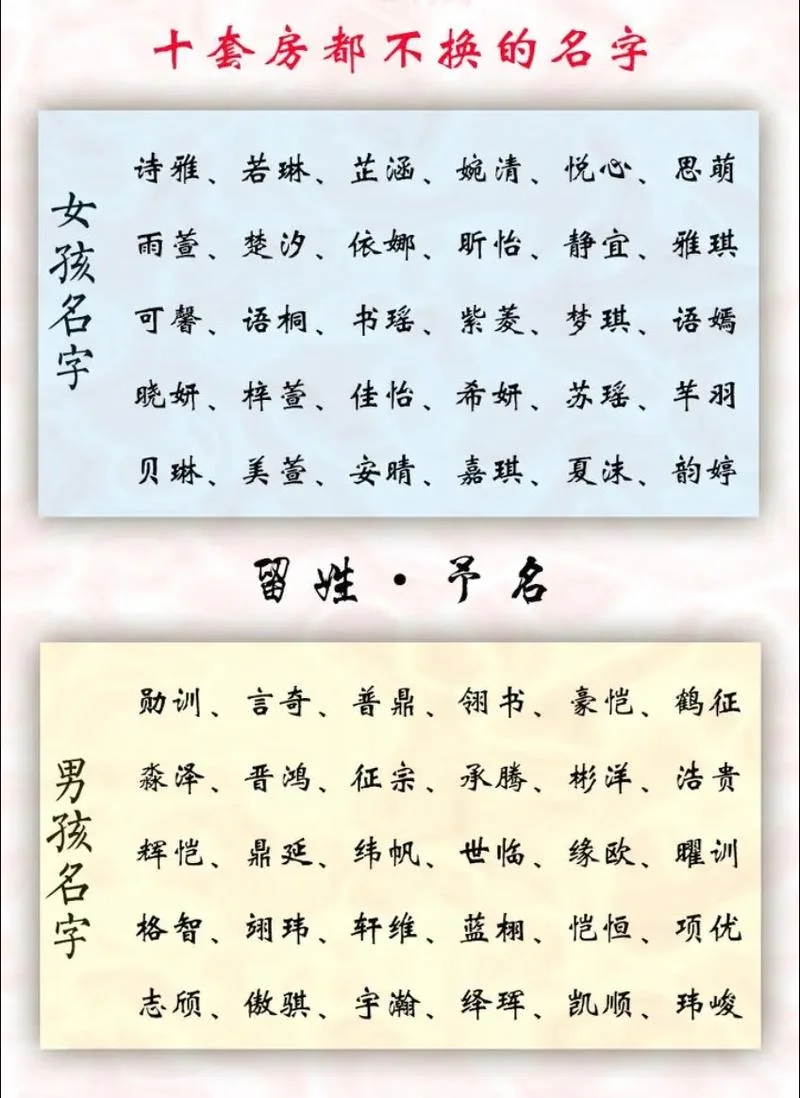 十套房都不换的名字
女孩名字
诗雅、若琳、芷涵、婉清、悦心、思萌
雨萱、楚汐、依娜、昕怡、静宜、雅琪
可馨、语桐、书瑶、紫菱、梦琪、语嫣
晓妍、梓萱、佳怡、希妍、苏瑶、芊羽
贝琳、美萱、安晴、嘉琪、夏沫、韵婷
留姓·予名
男孩名字
勋训、言奇、普鼎、翎书、豪恺、鹤征
淼泽、晋鸿、征宗、承腾、彬洋、浩贵
辉恺、鼎延、纬帆、世临、缘欧、曜训
格智、翊玮、轩维、蓝栩、恺恒、项优
志颀、傲骐、宇瀚、绎珲、凯顺、玮峻